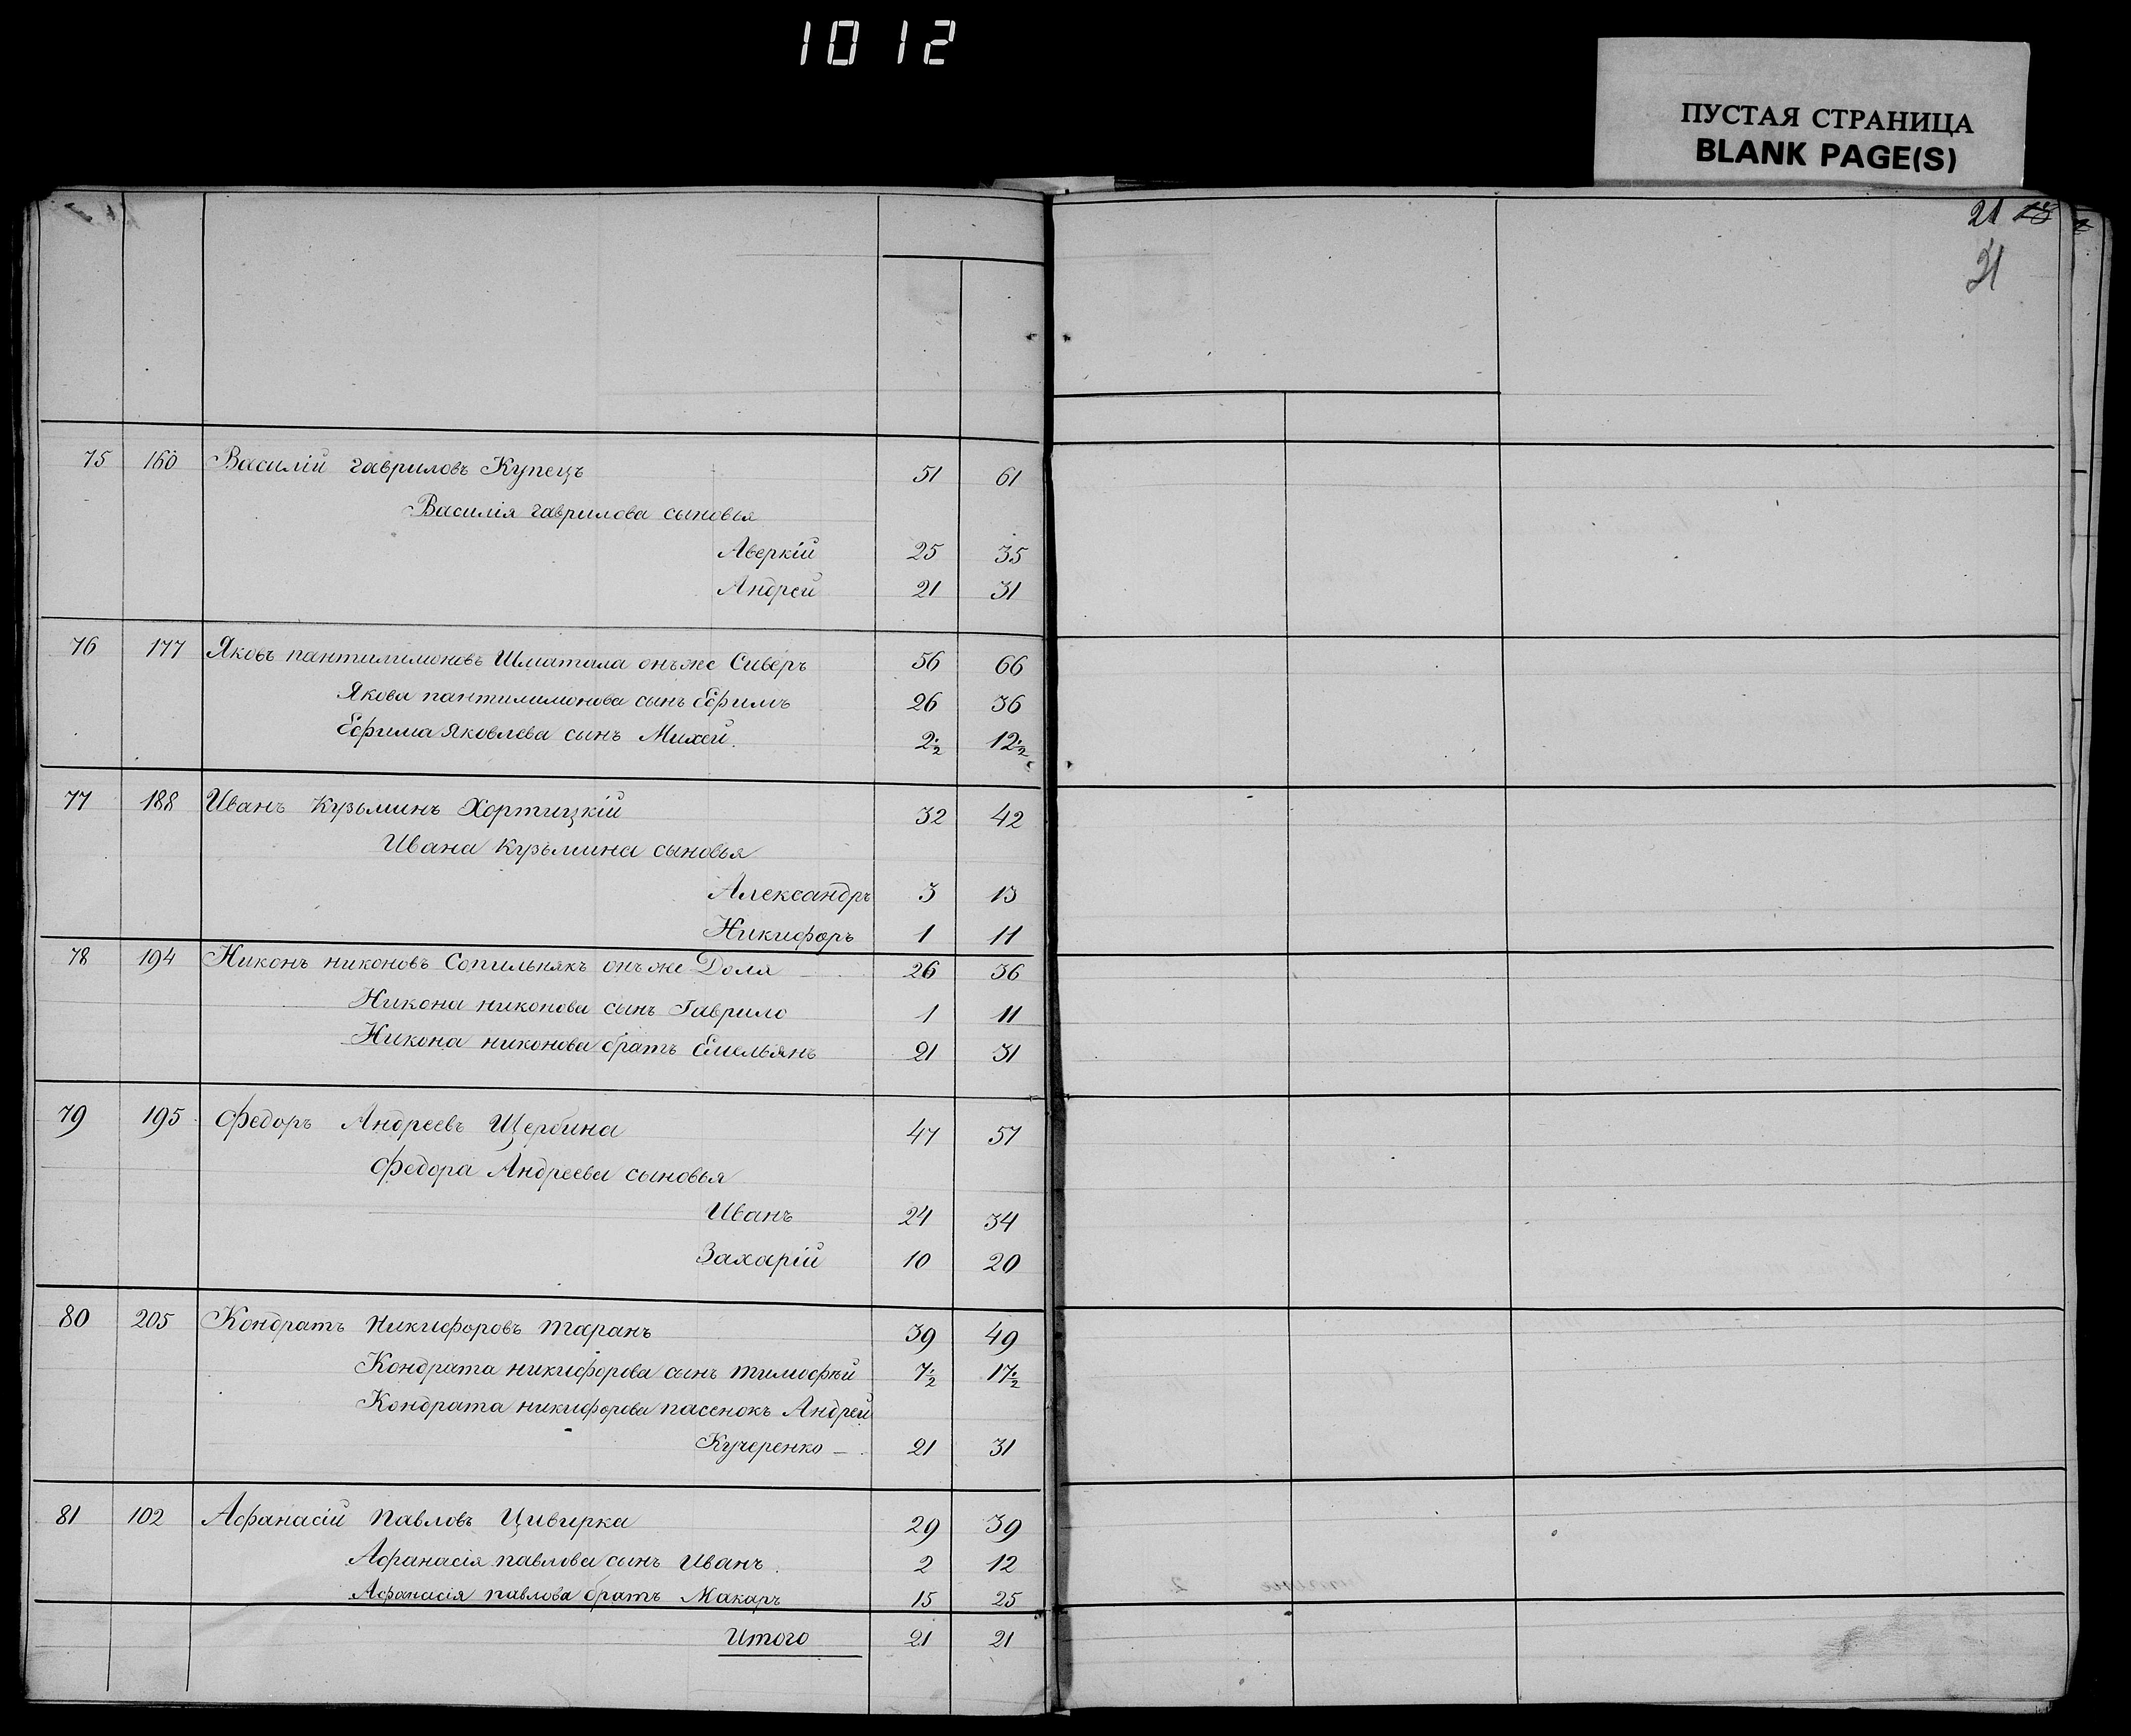 1012
ПУСТАЯ СТРАНИЦА
BLANK PAGE(S)
21 18
21
75 160 Василій гавриловъ Купецъ 51 61
Василія гаврилова сыновья
Аверкій 25 35
Андрей 21 31
76 177 Яковъ пантилимоновъ Шматала онъ же Сиверъ 56 66
Якова пантилимонова сынъ Ефимъ 26 36
Ефима Яковлева сынъ Михей. 2½ 12½
77 188 Иванъ Кузьминъ Хортицкій 32 42
Ивана Кузьмина сыновья
Александръ 3 13
Никифоръ 1 11
78 194 Никонъ никоновъ Сопильнякъ онъ же Доля 26 36
Никона никонова сынъ Гаврило 1 11
Никона никонова братъ Емельянъ 21 31
79 195 Федоръ Андреевъ Щербина 47 57
Федора Андреева сыновья
Иванъ 24 34
Захарій 10 20
80 205 Кондратъ Никифоровъ Таранъ 39 49
Кондрата никифорова сынъ Тимофѣй 7½ 17½
Кондрата никифорова пасенокъ Андрей
Кучеренко — 21 31
81 102 Афанасій Павловъ Цивирка 29 39
Афанасія павлова сынъ Иванъ. 2 12
Афанасія павлова братъ Макаръ 15 25
Итого 21 21